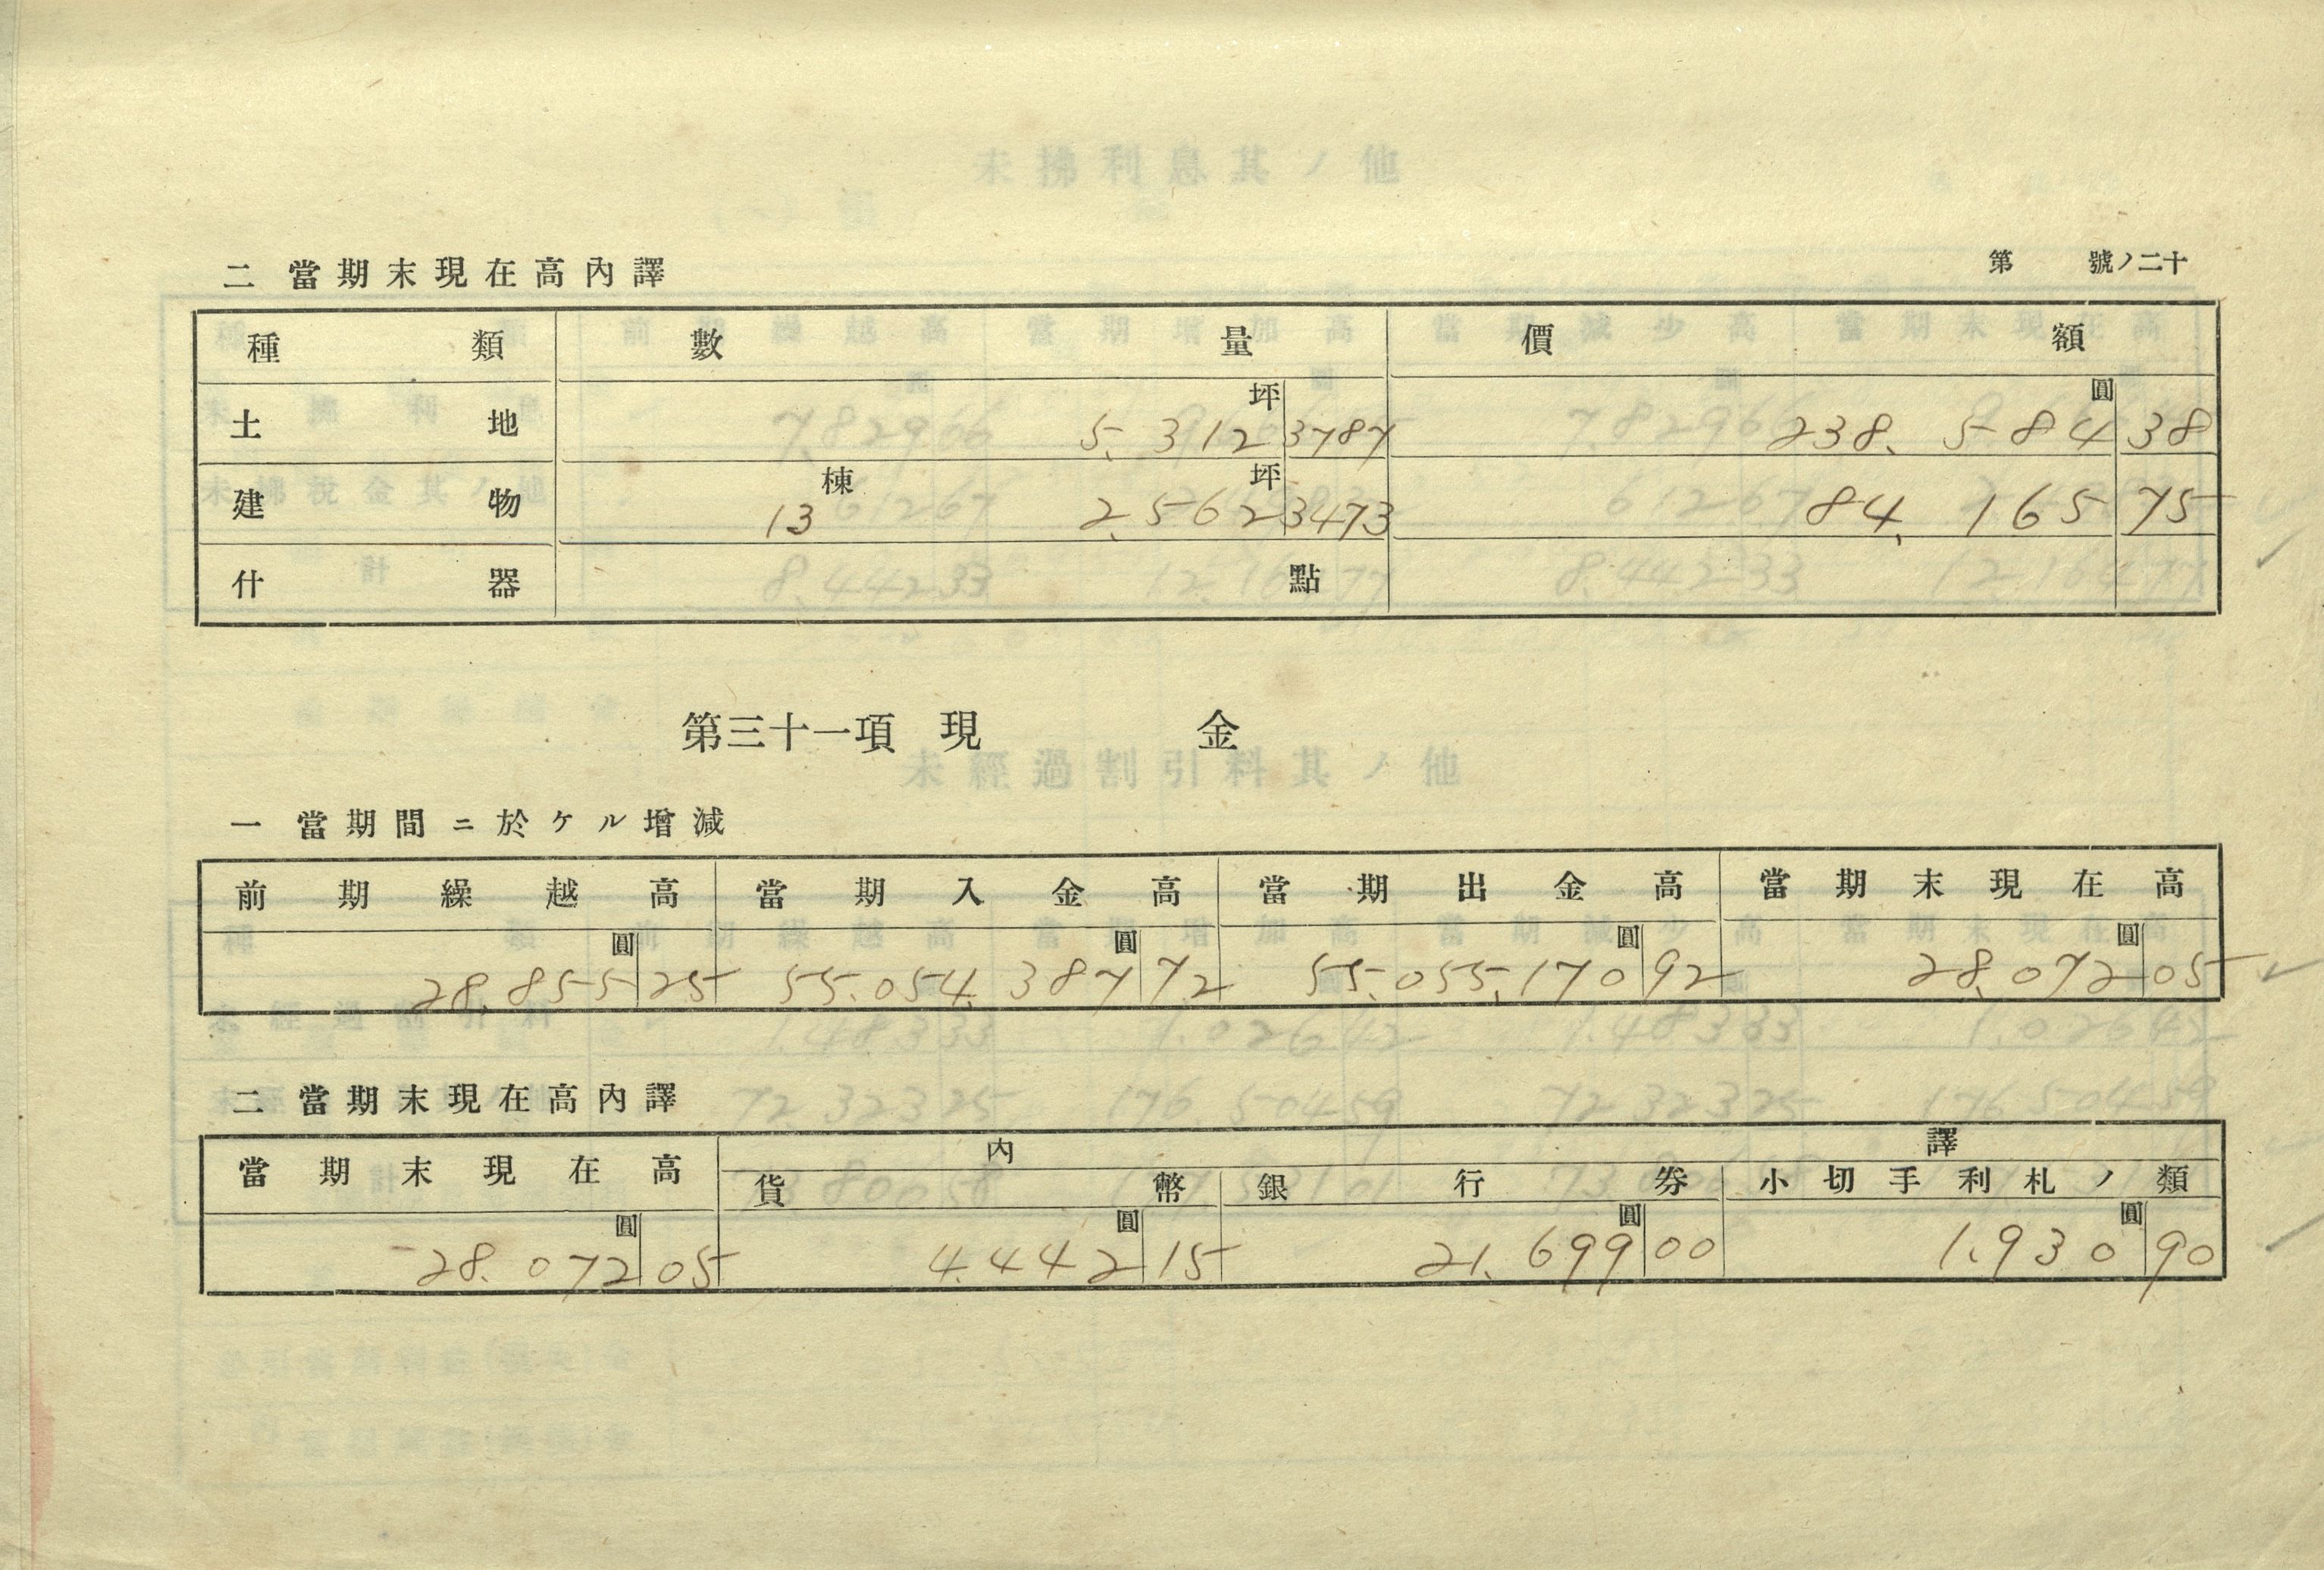 第　號ノ二十
二 當期末現在高內譯
種類 數量 價額
土地 5,312坪3787 238,584圓38
建物 13棟 2,562坪3473 84,165 75
什器 點
第三十一項 現金
一 當期間ニ於ケル增減
前期繰越高 當期入金高 當期出金高 當期末現在高
28,855圓25 55,054,387圓72 55,055,170圓92 28,072圓05
二 當期末現在高內譯
當期末現在高 內譯
貨幣 銀行券 小切手利札ノ類
28,072圓05 4,442圓15 21,699圓00 1,930圓90